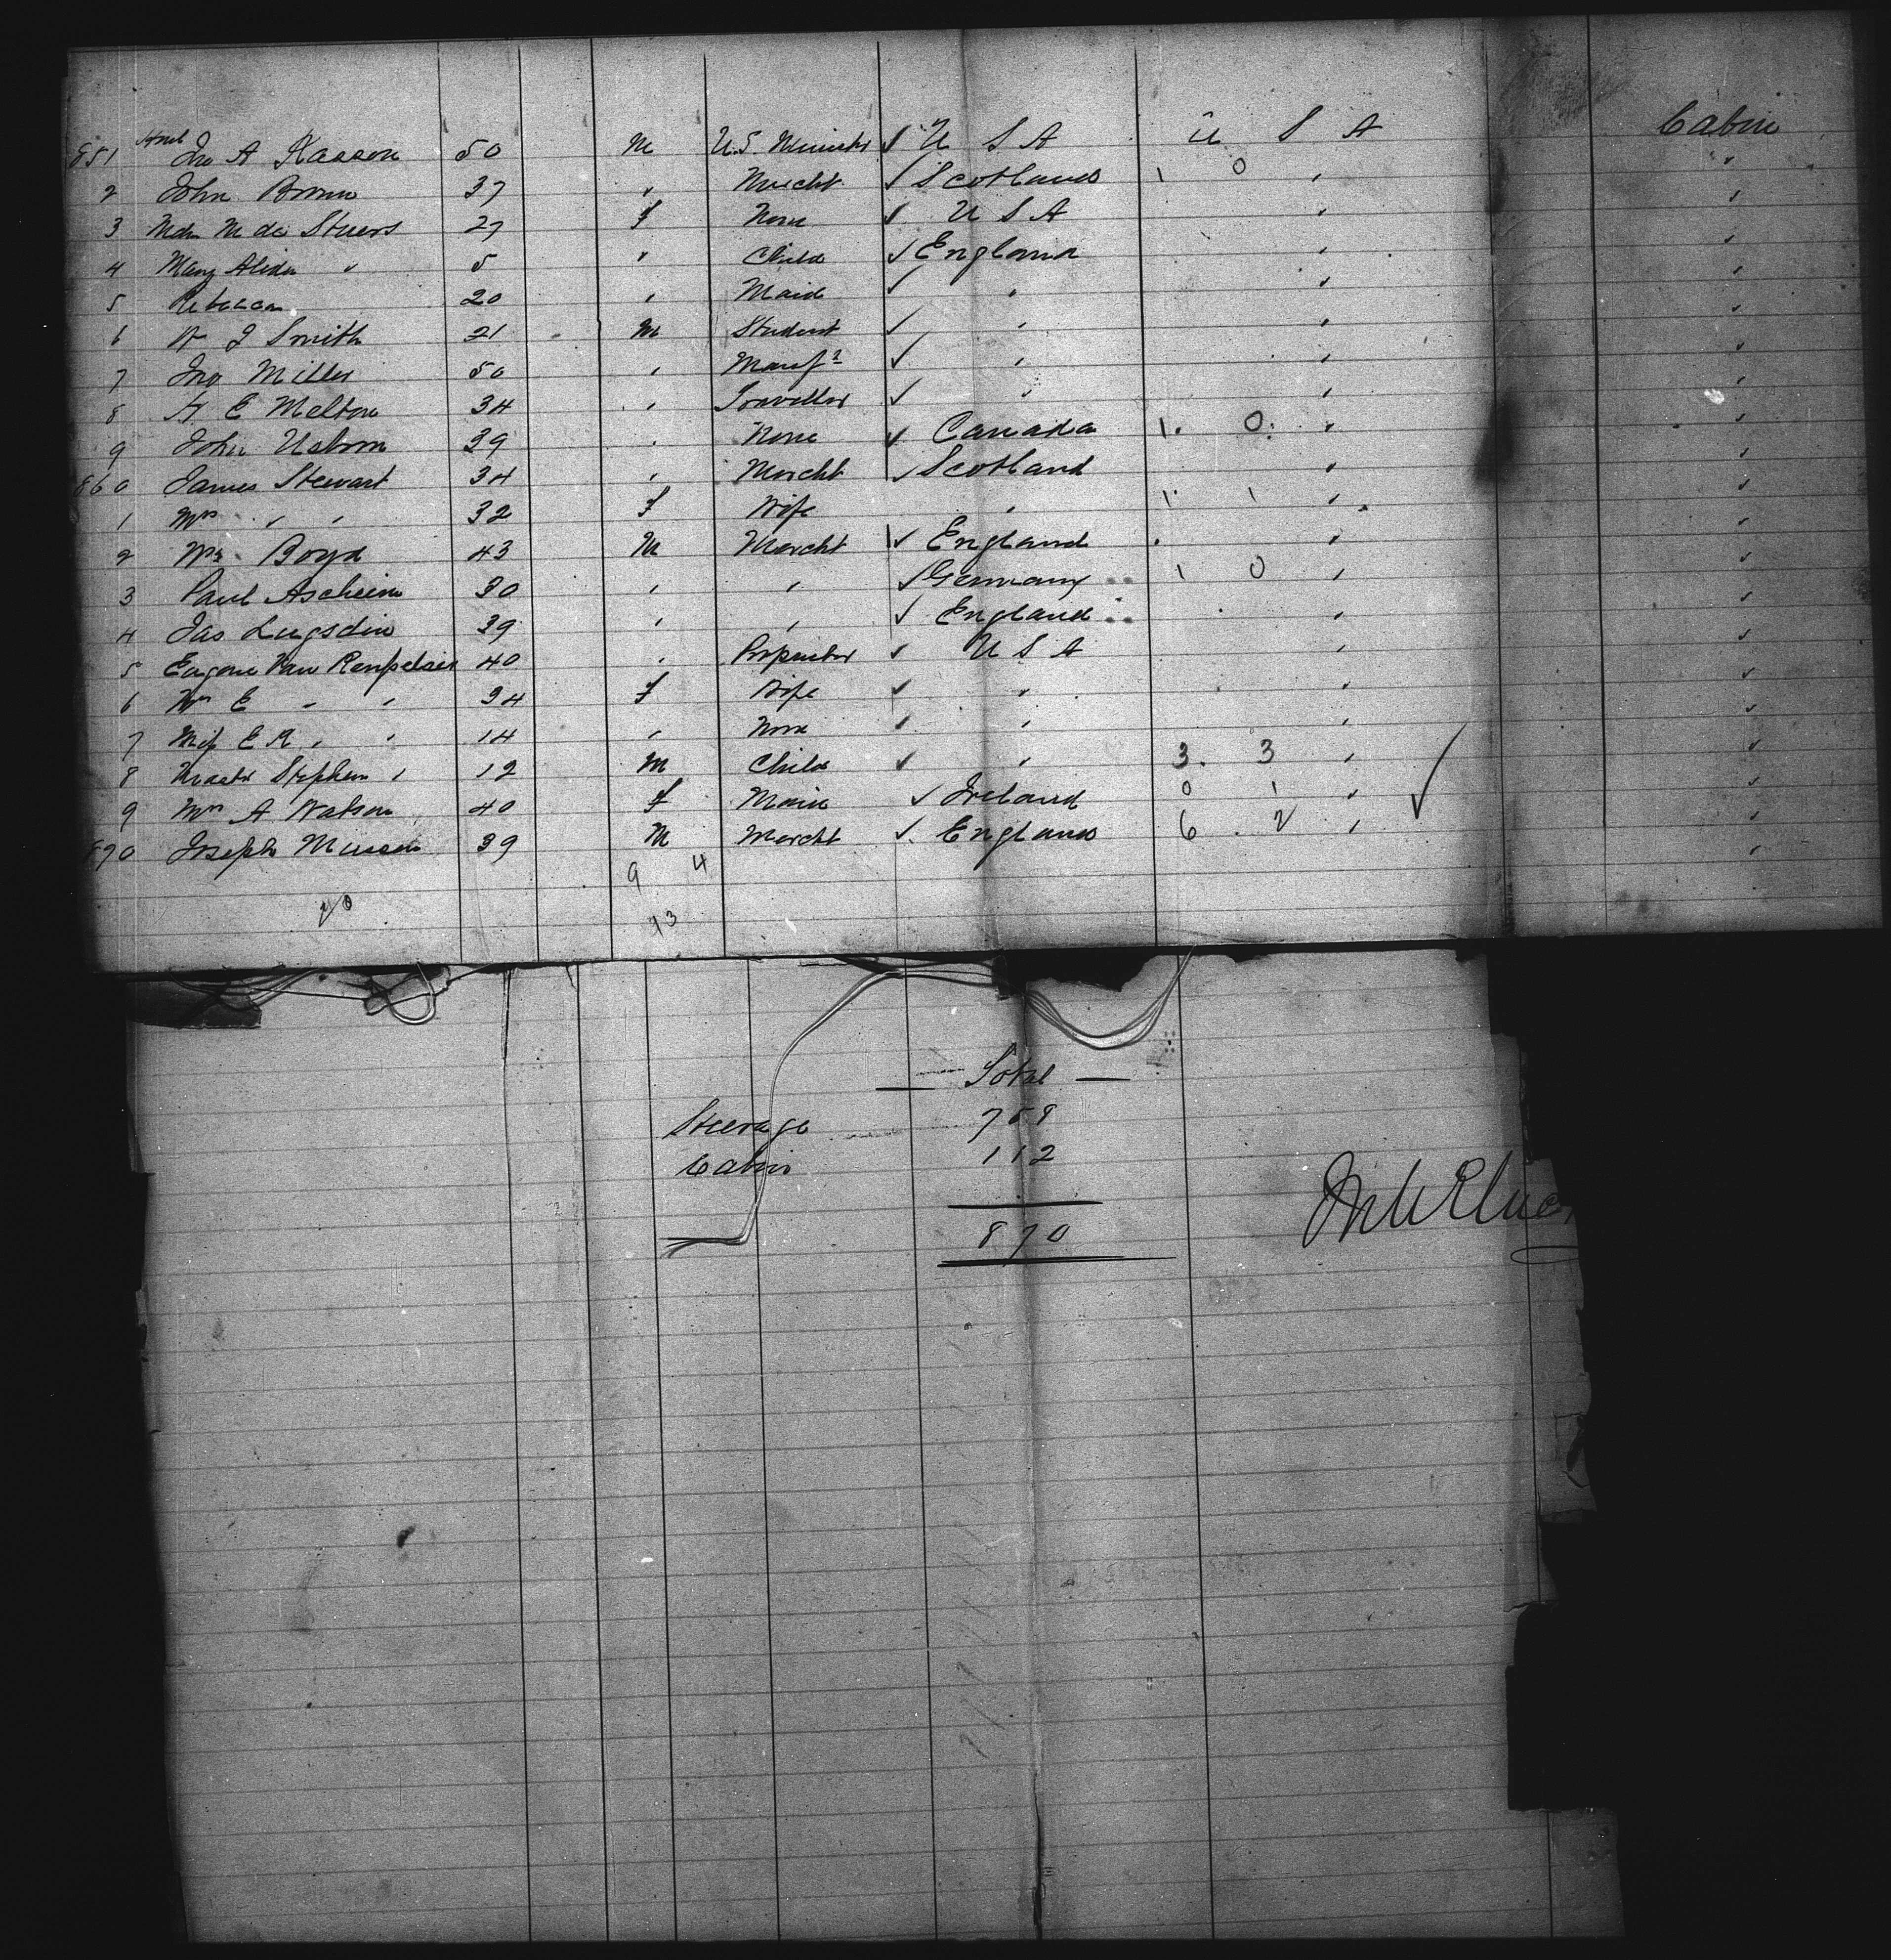 851 Honl Jno A Kasson 50 M U.S. Minister ✓ U S A U S A Cabin
2 John Brown 37 " Mercht ✓ Scotland 1 0 " "
3 Mdm M de Stuers 27 F None ✓ U S A " "
4 Mary Alida " 5 " Child ✓ England " "
5 Rebecca 20 " Maid ✓ " " "
6 W J Smith 21 M Student ✓ " " "
7 Jno Miller 50 " Manufr ✓ " " "
8 H E Melton 34 " Traveller ✓ " " "
9 John Usborn 39 " None ✓ Canada 1. 0. " "
860 James Stewart 34 " Mercht ✓ Scotland " "
1 Mrs " " 32 F Wife " 1 1 " "
2 Wm Boyd 43 M Mercht ✓ England " "
3 Paul Ascheim 30 " " ✓ Germany 1 0 " "
4 Jas Lugsdin 39 " " ✓ England " "
5 Eugene Van Renselaer 40 " Proprietor ✓ U S A " "
6 Mrs E " " 34 F Wife ✓ " " "
7 Miss E R " " 14 " None ✓ " " "
8 Master Stephen " 12 M Child ✓ " 3. 3 " "
9 Mrs A Watson 40 F Maid ✓ Ireland 0 1 " ✓ "
870 Joseph Musson 39 M Mercht ✓ England 6 2 " "
9 4
20 13
Total
Steerage 758
Cabin 112
870